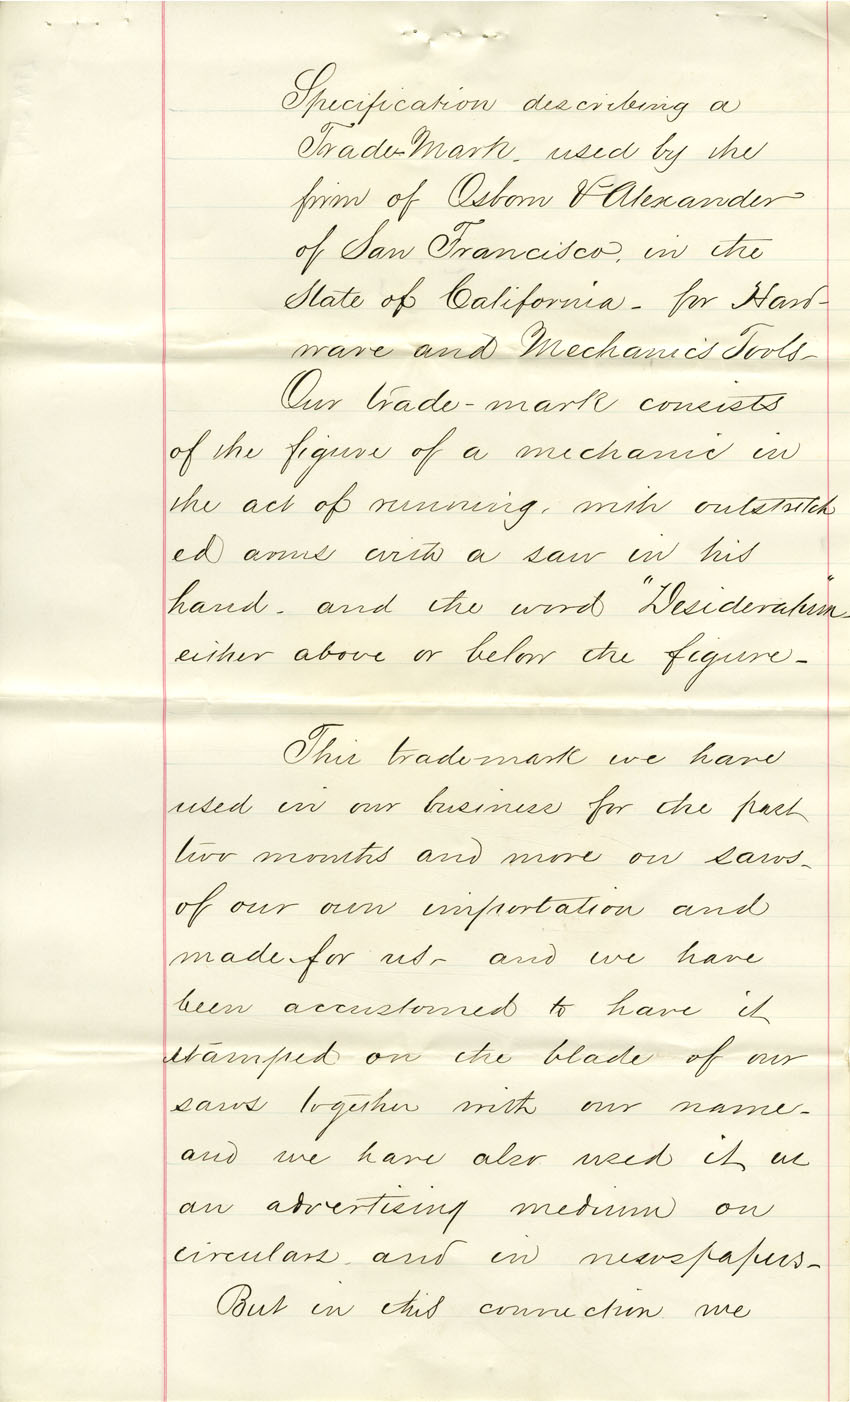 Specification describing a
Trade-Mark. used by the
firm of Osborn & Alexander
of San Francisco, in the
State of California - for Hard-
ware and Mechanic's Tools-
Our trade-mark consists
of the figure of a mechanic in
the act of running, with outstretch
ed arms with a saw in his
hand - and the word "Desideratum"-
either above or below the figure-
This trade-mark we have
used in our business for the past
two months and more on saws-
of our own importation and
made for us- and we have
been accustomed to have it
stamped on the blade of our
saws together with our name-
and we have also used it as
an advertising medium on
circulars and in newspapers-
But in this connection we